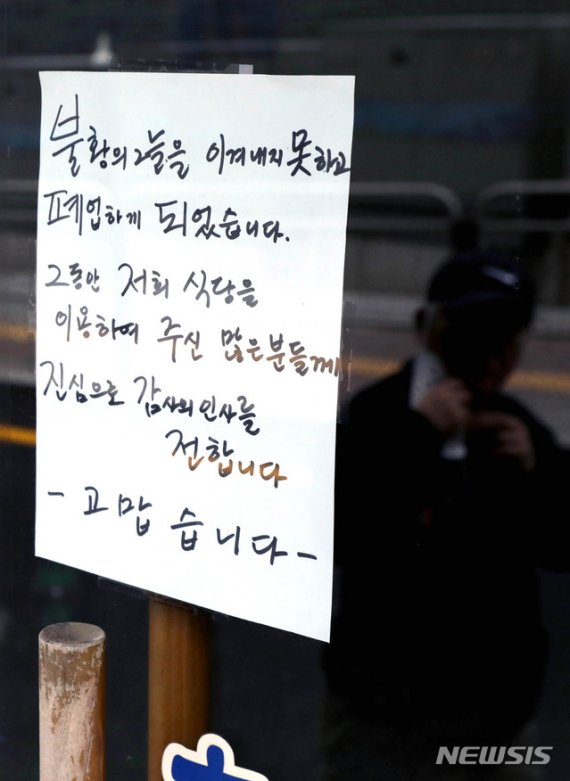 불황의 그늘을 이겨내지 못하고
폐업하게 되었습니다.
그동안 저희 식당을
이용하여 주신 많은분들께
진심으로 감사의 인사를
전합니다
- 고맙습니다 -
NEWSIS